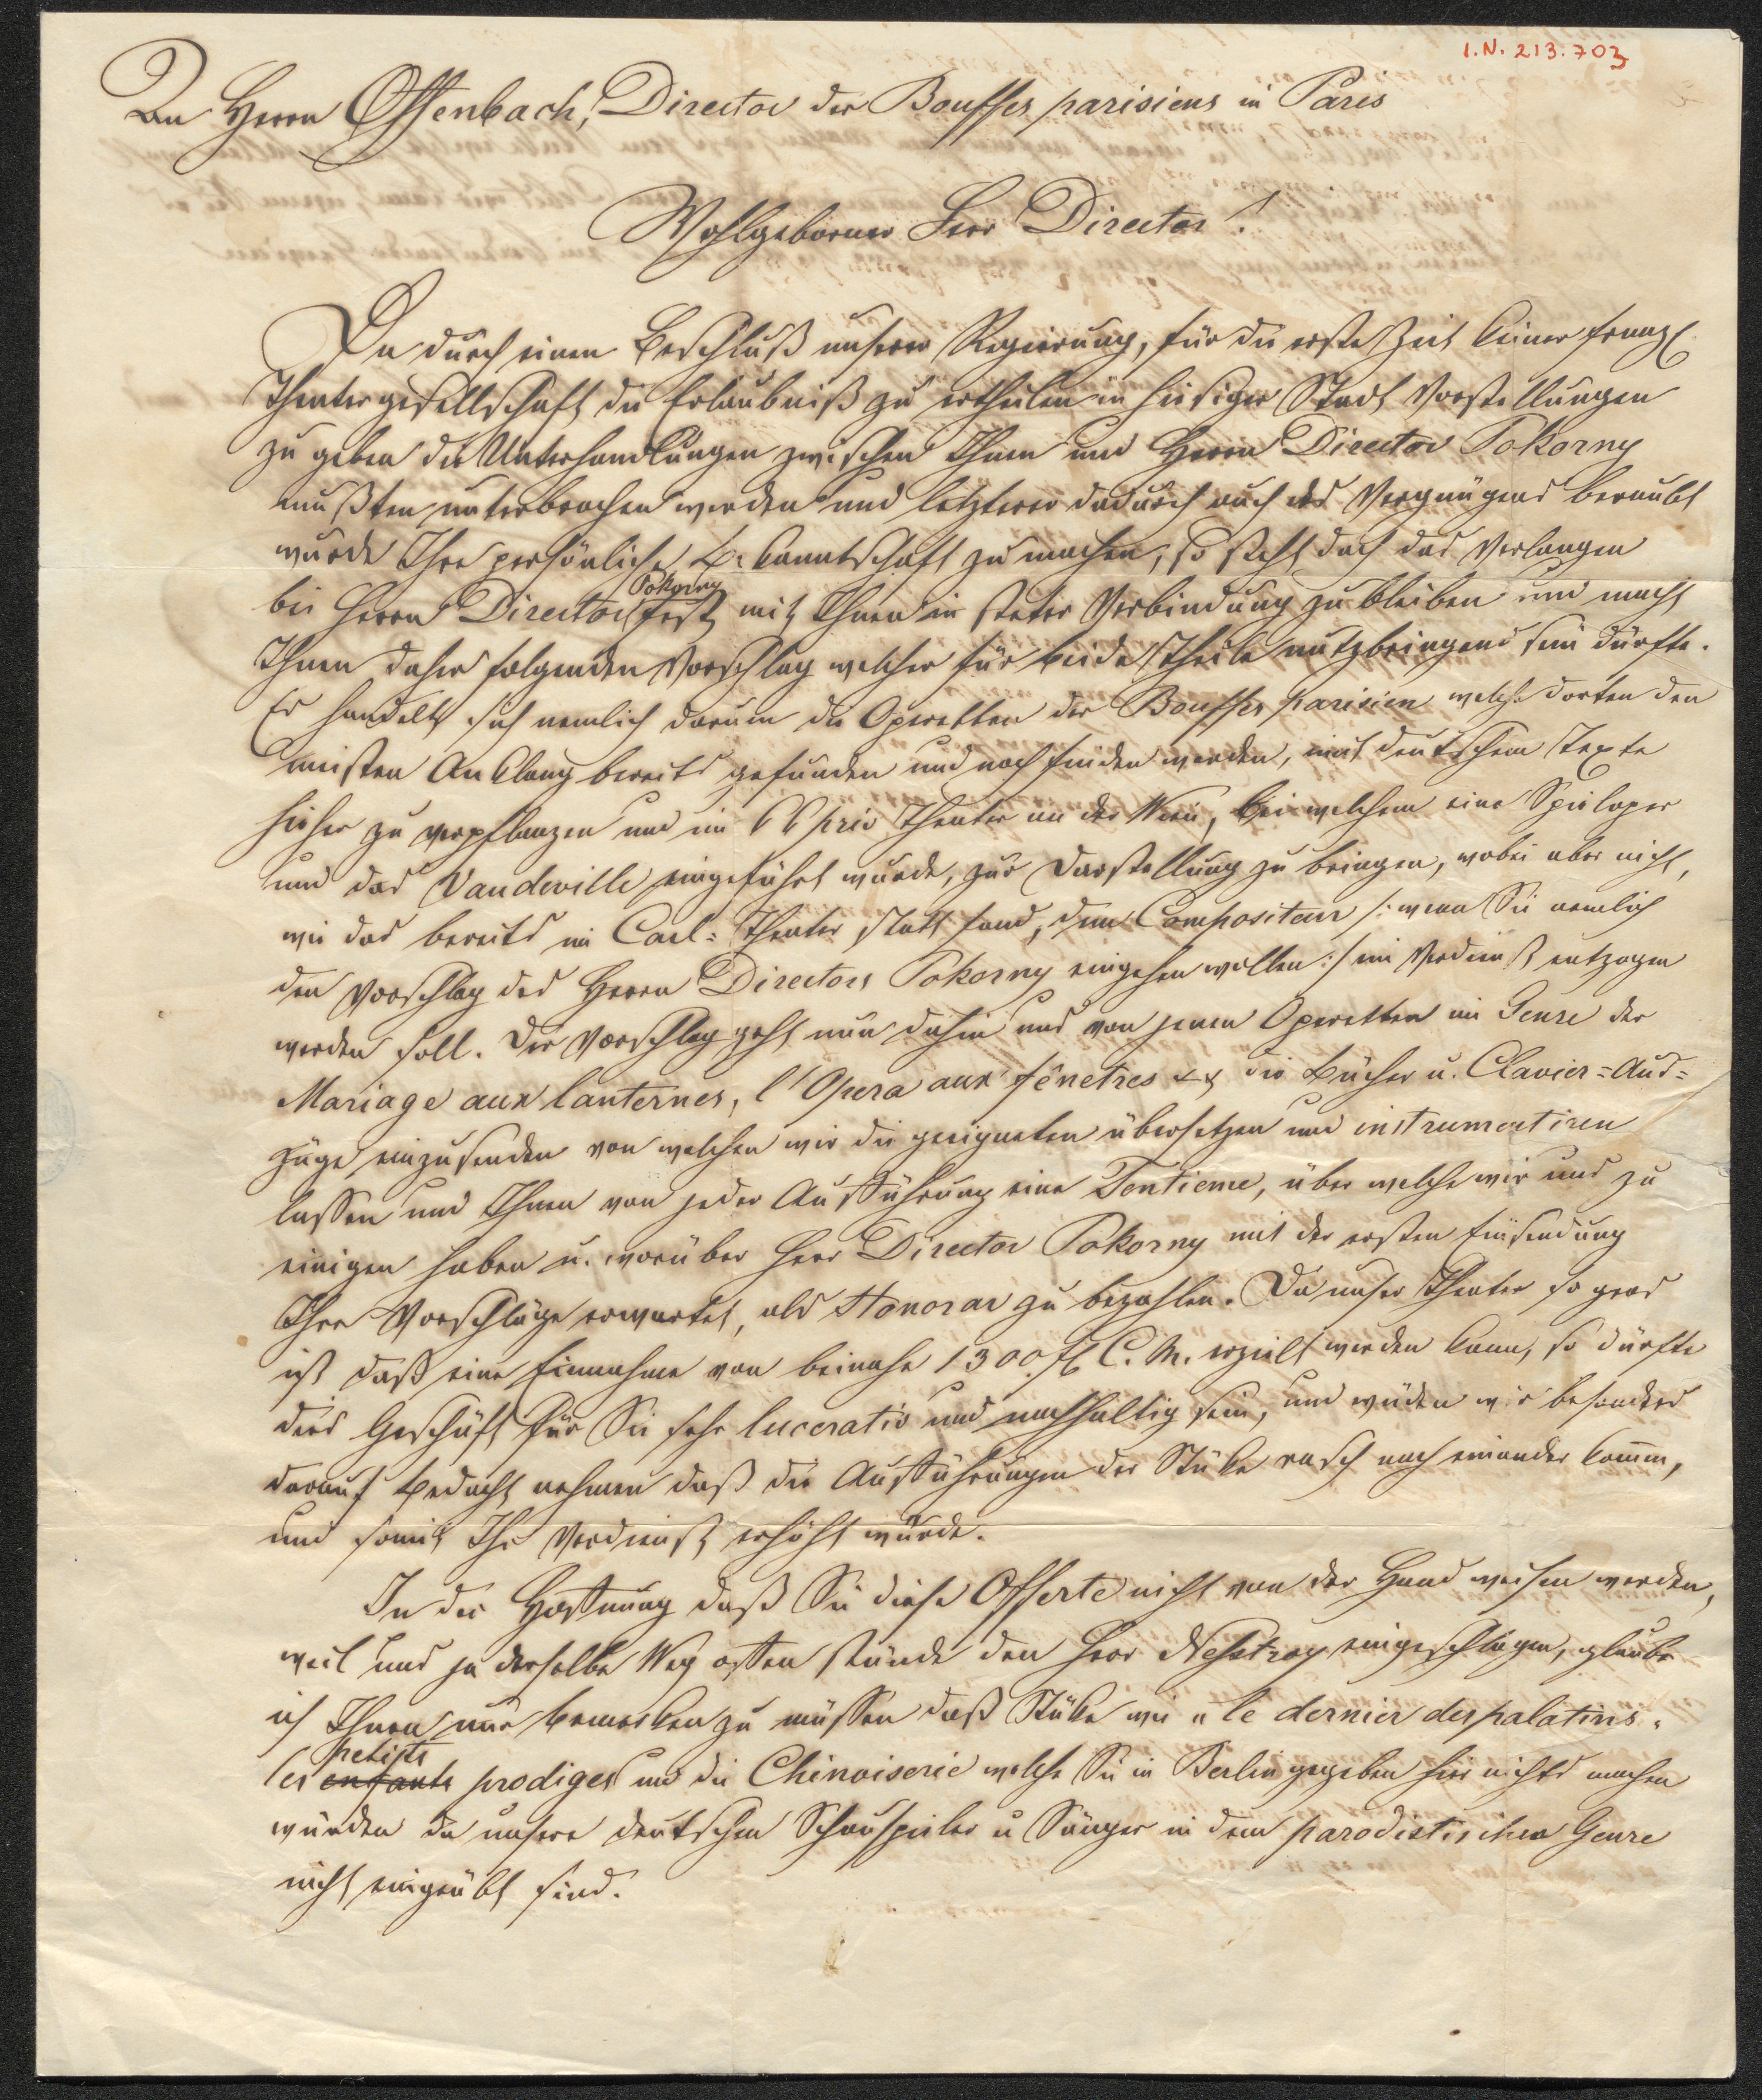 I.N. 213.703
An Herrn Offenbach, Director der Bouffes parisiens in Paris
Wohlgeborner Herr Director!
Da durch einen Beschluß unserer Regierung, für die erste Zeit keiner franz.
Theatergesellschaft die Erlaubniß zu ertheilen in hiesiger Stadt Vorstellungen
zu geben die Unterhandlungen zwischen Ihnen und Herrn Director Pokorny
mußten unterbrochen werden und letzterer dadurch auch des Vergnügens beraubt
wurde Ihre persönliche Bekanntschaft zu machen, so steht doch das Verlangen
bei Herrn Director Pokorny fest mit Ihnen in steter Verbindung zu bleiben und macht
Ihnen daher folgenden Vorschlag welcher für beide Theile nutzbringend sein dürfte.
Es handelt sich nemlich darum die Operetten der Bouffes parisien welche dorten den
meisten Anklang bereits gefunden und noch finden werden, mit deutschem Texte
hieher zu verpflanzen und im k k priv Theater an der Wien, bei welchem eine Spieloper
und das Vaudeville eingeführt wurde, zur Darstellung zu bringen, wobei aber nicht,
wie das bereits im Carl-Theater statt fand, dem Compositeur /: wenn Sie nemlich
den Vorschlag des Herrn Directors Pokorny eingehen wollen :/ ein Verdienst entzogen
werden soll. Der Vorschlag geht nun dahin uns von jenen Operetten im Genre der
Mariage aux lanternes, l'Opera aux fênetres die Bücher u. Clavier=Aus=
züge einzusenden von welchen wir die geeigneten übersetzen und instrumentiren
lassen und Ihnen von jeder Aufführung eine Tentieme, über welche wir uns zu
einigen haben u. worüber Herr Director Pokorny mit der ersten Einsendung
Ihre Vorschläge erwartet, als Honorar zu bezahlen. Da unser Theater so gros
ist daß eine Einnahme von beinahe 1300 fl C. M. erzielt werden kann, so dürfte
dies Geschäft für Sie sehr lucerativ und nachhaltig sein, und würden wir besonders
darauf bedacht nehmen daß die Aufführungen der Stüke rasch nach einander komm,
und somit Ihr Verdienst erhöht würde.
In der Hoffnung daß Sie diese Offerte nicht von der Hand weisen werden,
weil uns ja derselbe Weg offen stünde den Herr Nestroy eingeschlagen, glaube
ich Ihnen nur bemerken zu müssen daß Stüke wie "le dernier des palatins"
les enfants petits prodiges und die Chinoiserie welche Sie in Berlin gegeben hier nichts machen
würden da unsere deutschen Schauspieler u Sänger in dem parodistischen Genre
nicht eingeübt sind.